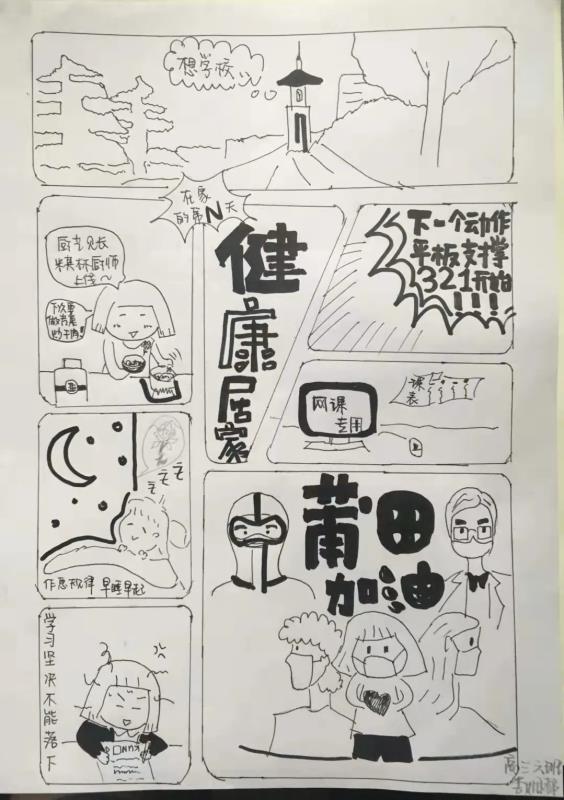 想学校...
在家
的第N天
厨艺见长
模杯厨师
上线~
下次要
做青蕉
炒干肉!
健康居家
下一个动作
平板支撑
321开始
!!!
网课
专用
课表
z z z
作息规律 早睡早起
莆田
加油
学习坚决不能落下
高三六班